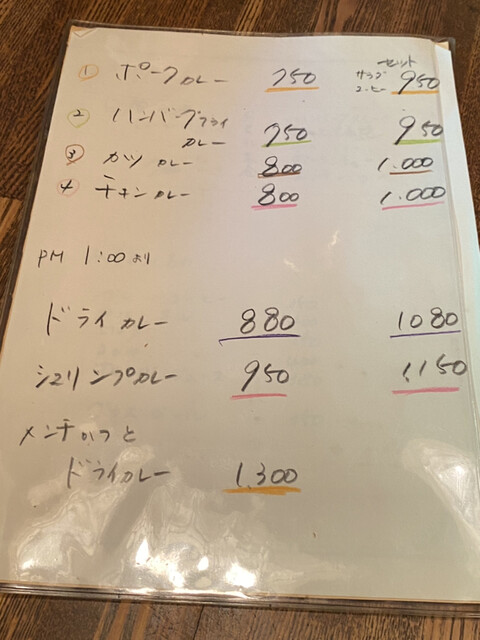 セット
① ポークカレー 750 サラダ 950
コーヒー
② ハンバーグフライ
カレー 750 950
③ カツカレー 800 1.000
④ チキンカレー 800 1.000
PM 1:00より
ドライカレー 880 1080
シュリンプカレー 950 1.150
メンチカツと
ドライカレー 1.300